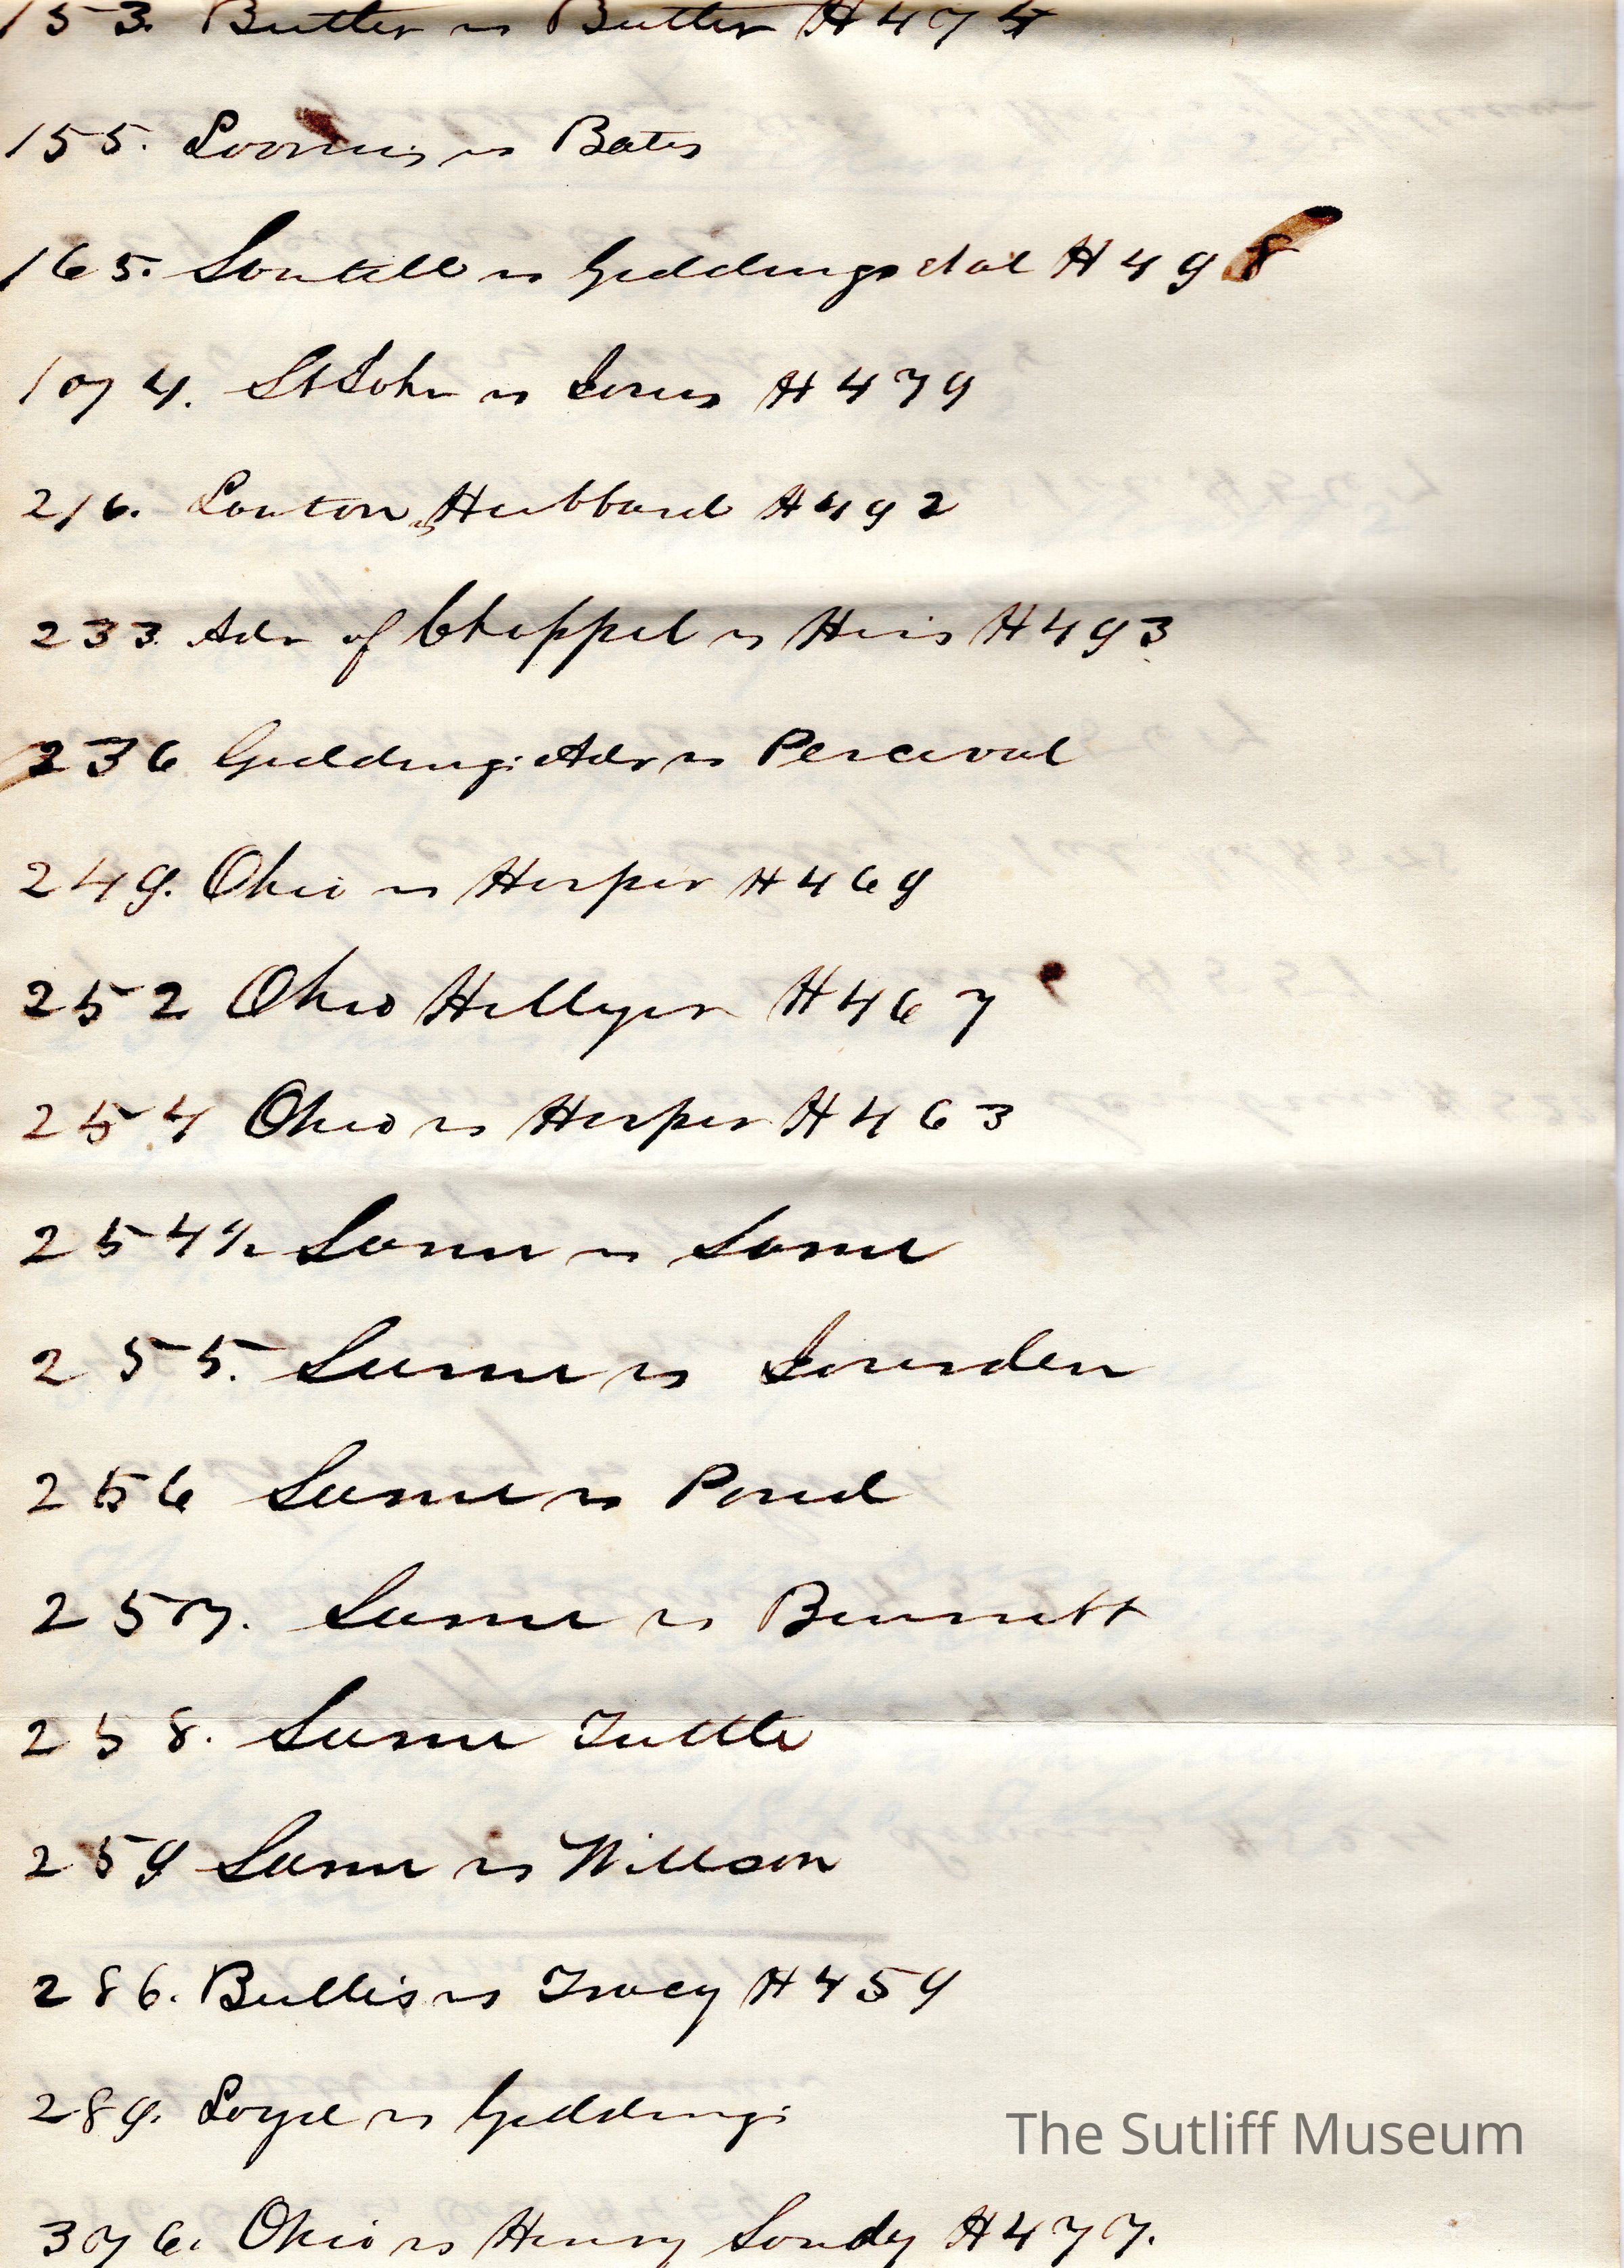 153. Butler vs Butler H 474
155. Loomis vs Bates
165. vs Giddings et al H 498
174. St John vs Jones H 479
216. Lawton vs Hubbard H 492
233. Adr of Chappel vs Heirs H 493
236 Giddings Adr vs Percival
249. Ohio vs Harper H 469
252 Ohio Hillyer H 467
254 Ohio vs Harper H 463
254½ Same vs Same
255. Same vs
256 Same vs Pond
257. Same vs Bennett
258. Same Tuttle
259 Same vs Willson
286. Bullis vs Tracy H 459
289. Loyd vs Giddings
The Sutliff Museum
376. Ohio vs Henry H 477.